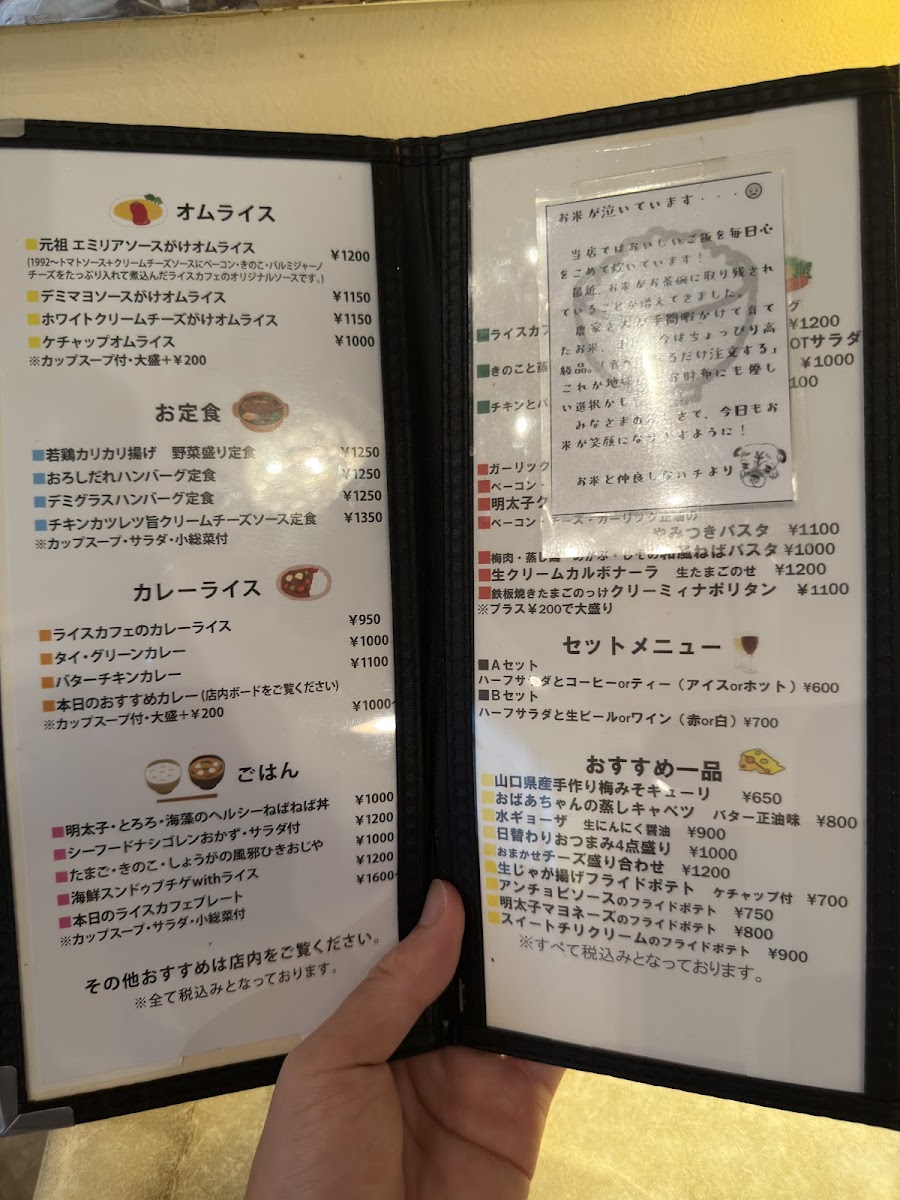 オムライス
元祖 エミリアソースがけオムライス ¥1200
(1992〜トマトソース+クリームチーズソースにベーコン・きのこ・パルミジャーノ
チーズをたっぷり入れて煮込んだライスカフェのオリジナルソースです。)
デミマヨソースがけオムライス ¥1150
ホワイトクリームチーズがけオムライス ¥1150
ケチャップオムライス ¥1000
※カップスープ付・大盛+¥200
お定食
若鶏カリカリ揚げ 野菜盛り定食 ¥1250
おろしだれハンバーグ定食 ¥1250
デミグラスハンバーグ定食 ¥1250
チキンカツレツ旨クリームチーズソース定食 ¥1350
※カップスープ・サラダ・小総菜付
カレーライス
ライスカフェのカレーライス ¥950
タイ・グリーンカレー ¥1000
バターチキンカレー ¥1100
本日のおすすめカレー(店内ボードをご覧ください) ¥1000~
※カップスープ付・大盛+¥200
ごはん
明太子・とろろ・海藻のヘルシーねばねば丼 ¥1000
シーフードナシゴレンおかず・サラダ付 ¥1200
たまご・きのこ・しょうがの風邪ひきおじや ¥1000
海鮮スンドゥブチゲwithライス ¥1200
本日のライスカフェプレート ¥1600~
※カップスープ・サラダ・小総菜付
その他おすすめは店内をご覧ください。
※全て税込みとなっております。
お米が泣いています・・・
当店ではおいしいご飯を毎日心
をこめて炊いています！
最近、お米がお茶碗に取り残され
ていることが増えてきました。
農家さんが手間暇かけて育て
たお米、 今はちょっぴり高
級品。「食べ るだけ注文する」
これが地球 お財布にも優し
い選択かも
みなさまの さで、今日もお
米が笑顔になりますように！
お米と仲良しなハチより
グ
ライスカフ ¥1200
ORサラダ
きのこと蒸 ¥1000
100
チキンとバ
ガーリック
ベーコン・
明太子ク
ベーコン・チーズ・ガーリック正油の
やみつきパスタ ¥1100
梅肉・蒸し鶏・めかぶ・しその和風ねばパスタ ¥1000
生クリームカルボナーラ 生たまごのせ ¥1200
鉄板焼きたまごのっけクリーミィナポリタン ¥1100
※プラス¥200で大盛り
セットメニュー
Aセット
ハーフサラダとコーヒーorティー(アイスorホット) ¥600
Bセット
ハーフサラダと生ビールorワイン(赤or白) ¥700
おすすめ一品
山口県産手作り梅みそキューリ ¥650
おばあちゃんの蒸しキャベツ バター正油味 ¥800
水ギョーザ 生にんにく醤油 ¥900
日替わりおつまみ4点盛り ¥1000
おまかせチーズ盛り合わせ ¥1200
生じゃが揚げフライドポテト ケチャップ付 ¥700
アンチョビソースのフライドポテト ¥750
明太子マヨネーズのフライドポテト ¥800
スイートチリクリームのフライドポテト ¥900
※すべて税込みとなっております。